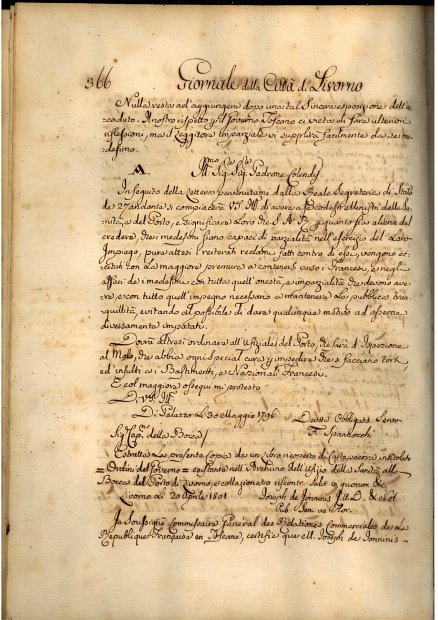 366 Giornale della Città di Livorno
Nulla resta ad'aggiungere dopo una tal Sincera esposizione dell'ac-
caduto. Il nostro rispetto p il Governo Toscano ci vieta di fare ulteriori
riflessioni, ma il Leggitore Imparziale vi supplirà facilmente da se me-
desimo.
A. Sig. Sig. Padrone Colendis
In seguito della Lettera pervenutami dalla Reale Segreteria di Stato
de 27 andante si compiacerà VS. Ill di avere a Se codesti Ministri della Sa-
nità, e del Porto, e significare Loro che S. A. R. p quanto sia aliena dal
credere, che i medesimi siano capaci di parzialità nell'esercizio del Loro
Impiego, pure attesi i reiterati reclami fatti contro di essi, vengono ec-
citati con La maggiore premura a contenersi verso i Francesi, e negli
affari de i medesimi con tutta quell'onestà, e imparzialità che devono ave-
re, e con tutto quell'impegno necessario a mantenere La pubblica tran-
quillità, evitando al possibile di dare qualunque motivo ad esserne
diversamente imputati.
Dovrà altresì ordinare all'Ufiziale del Porto, che farà l'Ispezione
al Molo, che abbia ogni special cura p impedire che si facciano torti
ed insulti ai Bastimenti, e Nazionali Francesi.
E col maggiore ossequi mi protesto
D. VS. Ill
Di Palazzo Li 30 Maggio 1796 Devot. Obbligat. Servo
Sig Cap. della Bocca F. Spannocchi
Estratta La presente Copia da un Libro coperto di Cartapecora intitolato
= Ordini del Governo = esistente nell'Archivio dell'Ufizio della Sanità alla
Bocca del Porto di Livorno, e collazionato riscontr. Salv. in quorum &c
Livorno Li 20 Aprile 1801 Joseph de Jonninis J. U. D. & Not
Pub. Flor.
Je Soussigné Commissaire Général des Relations Commerciales de La
République Française en Toscane, certifie que M. Joseph de Jonninis